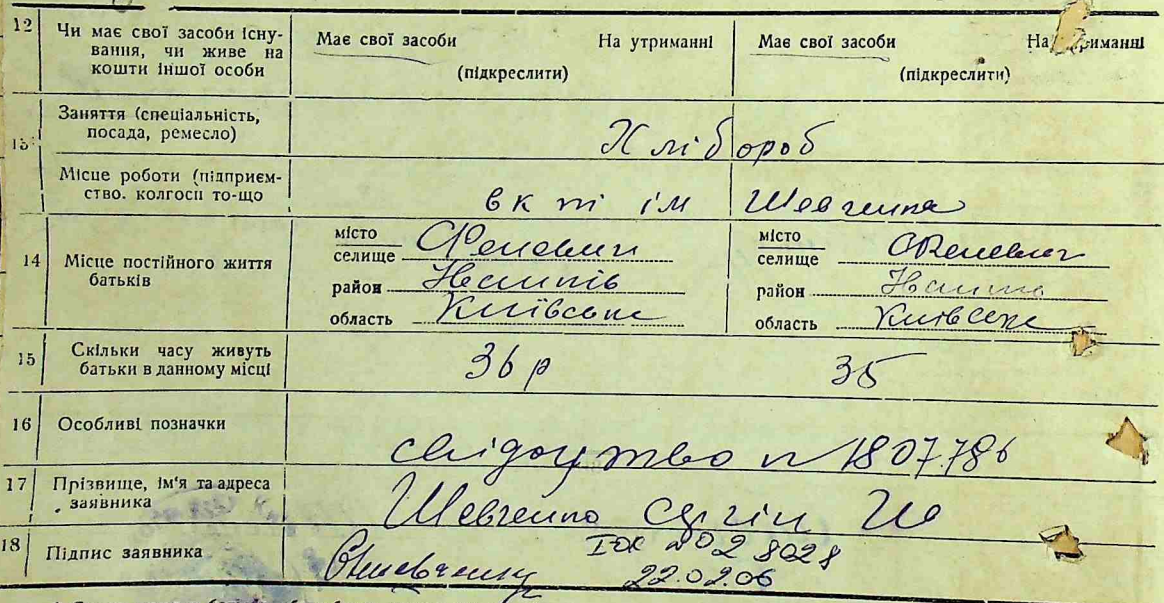 12 Чи має свої засоби існу-
вання, чи живе на
кошти іншої особи
Має свої засоби На утриманні Має свої засоби На утриманні
(підкреслити) (підкреслити)
Заняття (спеціальність,
посада, ремесло)
Хлібороб
13
Місце роботи (підприєм-
ство. колгосп то-що
в к ім Шевченка
14 Місце постійного життя
батьків
місто
селище
район
область Київська
місто
селище
район
область Київська
15 Скільки часу живуть
батьки в данному місці
36 р 35
16 Особливі позначки
свідоцтво n 1807.786
17 Прізвище, ім'я та адреса
заявника
Шевченко
18 Підпис заявника
22.02.06